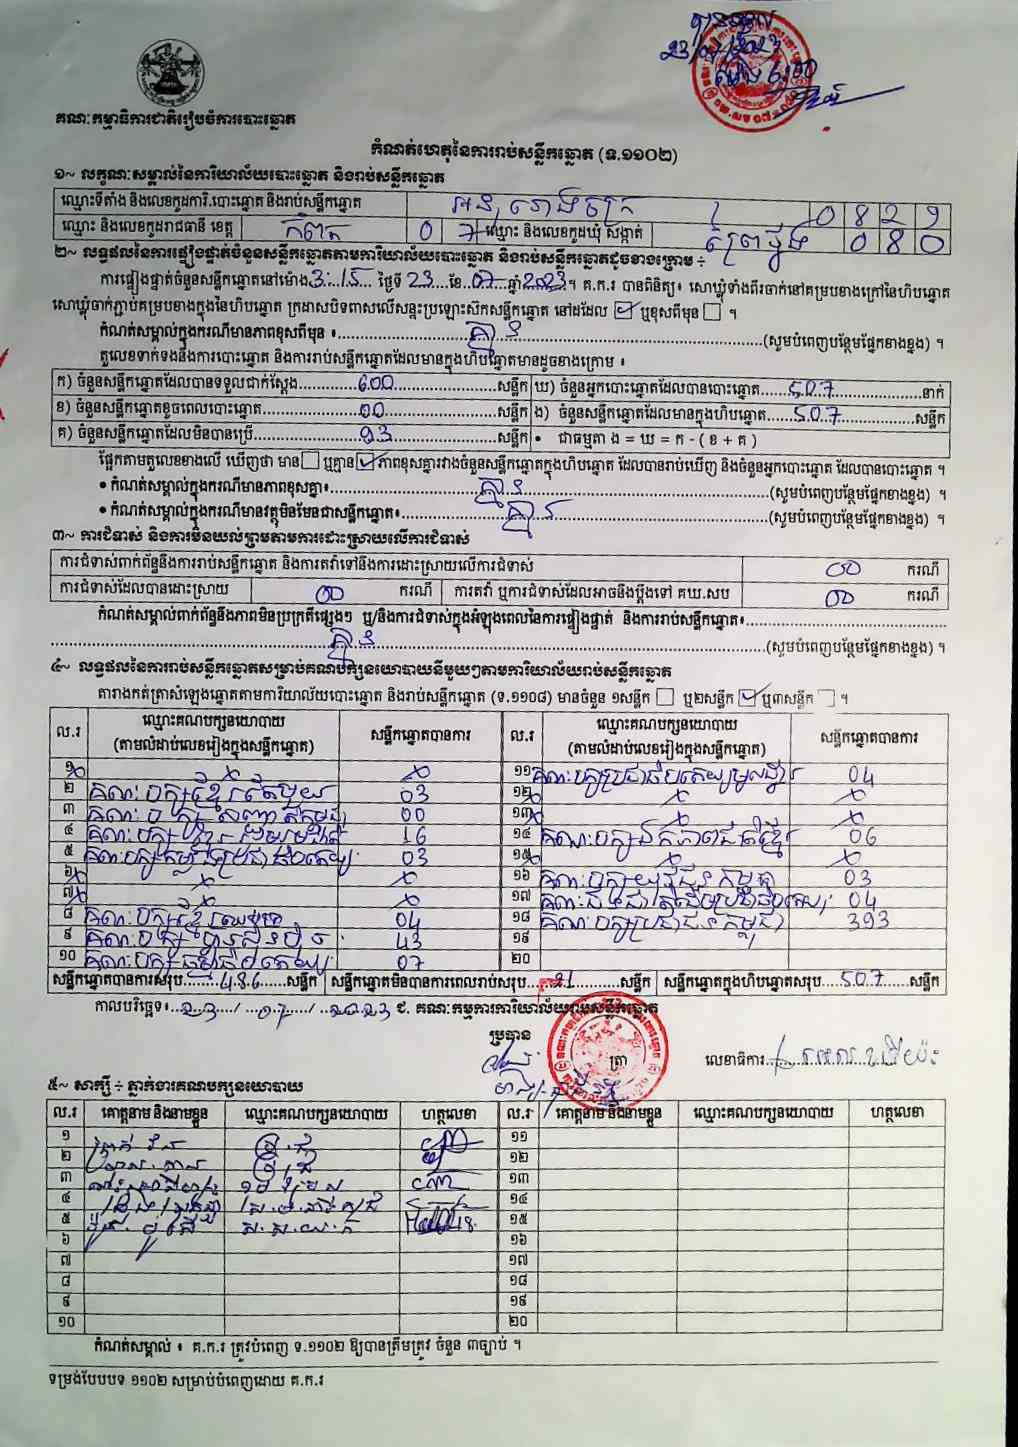 គណៈកម្មាធិការជាតិរៀបចំការបោះឆ្នោត
កំណត់ហេតុនៃការរាប់សន្លឹកឆ្នោត (ទ.១១០២)
១~ លក្ខណៈសម្គាល់នៃការិយាល័យបោះឆ្នោត និងរាប់សន្លឹកឆ្នោត
ឈ្មោះទីតាំង និងលេខកូដការិ.បោះឆ្នោត និងរាប់សន្លឹកឆ្នោត 0 8 2 9
ឈ្មោះ និងលេខកូដរាជធានី ខេត្ត កំពត 0 7 ឈ្មោះ និងលេខកូដឃុំ សង្កាត់ 0 8 0
២~ លទ្ធផលនៃការផ្ទៀងផ្ទាត់ចំនួនសន្លឹកឆ្នោតតាមការិយាល័យបោះឆ្នោត និងរាប់សន្លឹកឆ្នោតដូចខាងក្រោម ÷
ការផ្ទៀងផ្ទាត់ចំនួនសន្លឹកឆ្នោតនៅម៉ោង 3:15 ថ្ងៃទី 23 ខែ 07 ឆ្នាំ 2023 ។ គ.ក.រ បានពិនិត្យ៖ សោឃ្លុំទាំងពីរចាក់នៅគម្របខាងក្រៅនៃហិបឆ្នោត
សោឃ្លុំចាក់ភ្ជាប់គម្របខាងក្នុងនៃហិបឆ្នោត ក្រដាសបិទពាសលើសន្ទះប្រឡោះស៊កសន្លឹកឆ្នោត នៅដដែល ☑ ឬខុសពីមុន ☐ ។
កំណត់សម្គាល់ក្នុងករណីមានភាពខុសពីមុន ៖ គ្មាន (សូមបំពេញបន្ថែមផ្នែកខាងខ្នង) ។
តួលេខទាក់ទងនឹងការបោះឆ្នោត និងការរាប់សន្លឹកឆ្នោតដែលមានក្នុងហិបឆ្នោតមានដូចខាងក្រោម ៖
ក) ចំនួនសន្លឹកឆ្នោតដែលបានទទួលជាក់ស្តែង 600 សន្លឹក ឃ) ចំនួនអ្នកបោះឆ្នោតដែលបានបោះឆ្នោត 507 នាក់
ខ) ចំនួនសន្លឹកឆ្នោតខូចពេលបោះឆ្នោត 00 សន្លឹក ង) ចំនួនសន្លឹកឆ្នោតដែលមានក្នុងហិបឆ្នោត 507 សន្លឹក
គ) ចំនួនសន្លឹកឆ្នោតដែលមិនបានប្រើ 93 សន្លឹក • ជាធម្មតា ង = ឃ = ក - ( ខ + គ )
ផ្អែកតាមតួលេខខាងលើ ឃើញថា មាន ☐ ឬគ្មាន ☑ ភាពខុសគ្នារវាងចំនួនសន្លឹកឆ្នោតក្នុងហិបឆ្នោត ដែលបានរាប់ឃើញ និងចំនួនអ្នកបោះឆ្នោត ដែលបានបោះឆ្នោត ។
• កំណត់សម្គាល់ក្នុងករណីមានភាពខុសគ្នា៖ គ្មាន (សូមបំពេញបន្ថែមផ្នែកខាងខ្នង) ។
• កំណត់សម្គាល់ក្នុងករណីមានវត្ថុមិនមែនជាសន្លឹកឆ្នោត៖ គ្មាន (សូមបំពេញបន្ថែមផ្នែកខាងខ្នង) ។
៣~ ការជំទាស់ និងការមិនយល់ព្រមតាមការដោះស្រាយលើការជំទាស់
ការជំទាស់ពាក់ព័ន្ធនឹងការរាប់សន្លឹកឆ្នោត និងការតវ៉ាទៅនឹងការដោះស្រាយលើការជំទាស់ 00 ករណី
ការជំទាស់ដែលបានដោះស្រាយ 00 ករណី ការតវ៉ា ឬការជំទាស់ដែលអាចនឹងប្តឹងទៅ គឃ.សប 00 ករណី
កំណត់សម្គាល់ពាក់ព័ន្ធនឹងភាពមិនប្រក្រតីផ្សេងៗ ឬ/និងការជំទាស់ក្នុងអំឡុងពេលនៃការផ្ទៀងផ្ទាត់ និងការរាប់សន្លឹកឆ្នោត៖
គ្មាន (សូមបំពេញបន្ថែមផ្នែកខាងខ្នង) ។
៤~ លទ្ធផលនៃការរាប់សន្លឹកឆ្នោតសម្រាប់គណបក្សនយោបាយនីមួយៗតាមការិយាល័យរាប់សន្លឹកឆ្នោត
តារាងកត់ត្រាសំឡេងឆ្នោតតាមការិយាល័យបោះឆ្នោត និងរាប់សន្លឹកឆ្នោត (ទ.១១០៨) មានចំនួន ១សន្លឹក ☐ ឬ២សន្លឹក ☑ ឬ៣សន្លឹក ☐ ។
ល.រ ឈ្មោះគណបក្សនយោបាយ (តាមលំដាប់លេខរៀងក្នុងសន្លឹកឆ្នោត) សន្លឹកឆ្នោតបានការ ល.រ ឈ្មោះគណបក្សនយោបាយ (តាមលំដាប់លេខរៀងក្នុងសន្លឹកឆ្នោត) សន្លឹកឆ្នោតបានការ
១ ១១ គណៈបក្សប្រជាធិបតេយ្យមូលដ្ឋាន 04
២ គណៈបក្សខ្មែរតែមួយ 03 ១២
៣ 00 ១៣
៤ គណៈបក្សខ្មែរ 16 ១៤ គណៈបក្សឯកភាពជាតិខ្មែរ 06
៥ គណៈបក្សកម្លាំងប្រជាធិបតេយ្យ 03 ១៥
៦ ១៦ គណៈបក្សយុវជនកម្ពុជា 03
៧ ១៧ 04
៨ គណៈបក្សខ្មែរ 04 ១៨ គណៈបក្សប្រជាជនកម្ពុជា 393
៩ គណៈបក្សហ្វ៊ុនស៊ិនប៉ិច 43 ១៩
១០ គណៈបក្សធម្មាធិបតេយ្យ 07 ២០
សន្លឹកឆ្នោតបានការសរុប 486 សន្លឹក សន្លឹកឆ្នោតមិនបានការពេលរាប់សរុប 21 សន្លឹក សន្លឹកឆ្នោតក្នុងហិបឆ្នោតសរុប 507 សន្លឹក
កាលបរិច្ឆេទ៖ 23 / 07 / 2023 ជ. គណៈកម្មការការិយាល័យរាប់សន្លឹកឆ្នោត
ប្រធាន
ត្រា
លេខាធិការ
៥~ សាក្សី ÷ ភ្នាក់ងារគណបក្សនយោបាយ
ល.រ គោត្តនាម និងនាមខ្លួន ឈ្មោះគណបក្សនយោបាយ ហត្ថលេខា ល.រ គោត្តនាម និងនាមខ្លួន ឈ្មោះគណបក្សនយោបាយ ហត្ថលេខា
១ ១១
២ ១២
៣ ១៣
៤ ១៤
៥ ១៥
៦
៧ ១៧
៨ ១៨
៩ ១៩
១០ ២០
កំណត់សម្គាល់ ៖ គ.ក.រ ត្រូវបំពេញ ទ.១១០២ ឱ្យបានត្រឹមត្រូវ ចំនួន ៣ច្បាប់ ។
ទម្រង់បែបបទ ១១០២ សម្រាប់បំពេញដោយ គ.ក.រ